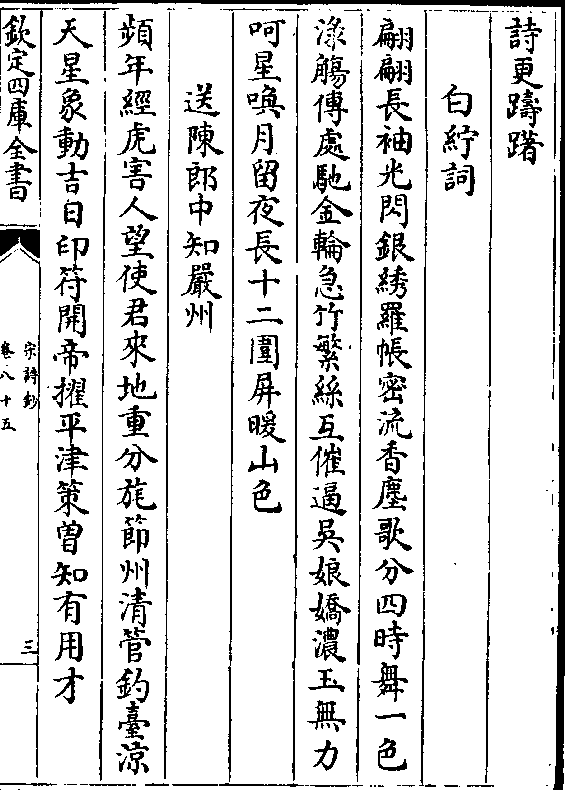 詩更躊躇
白紵詞
翩翩長袖光閃銀綉羅帳密流香塵歌分四時舞一色
淥觴傳處馳金輪急竹繁絲互催逼吳娘嬌濃玉無力
呵星喚月留夜長十二圍屏暖山色
送陳郎中知嚴州
頻年經虎害人望使君來地重分旄節州清管釣臺涼
天星象動吉日印符開帝擢平津策曽知有用才
欽定四庫全書
宋詩鈔
卷八十五
三